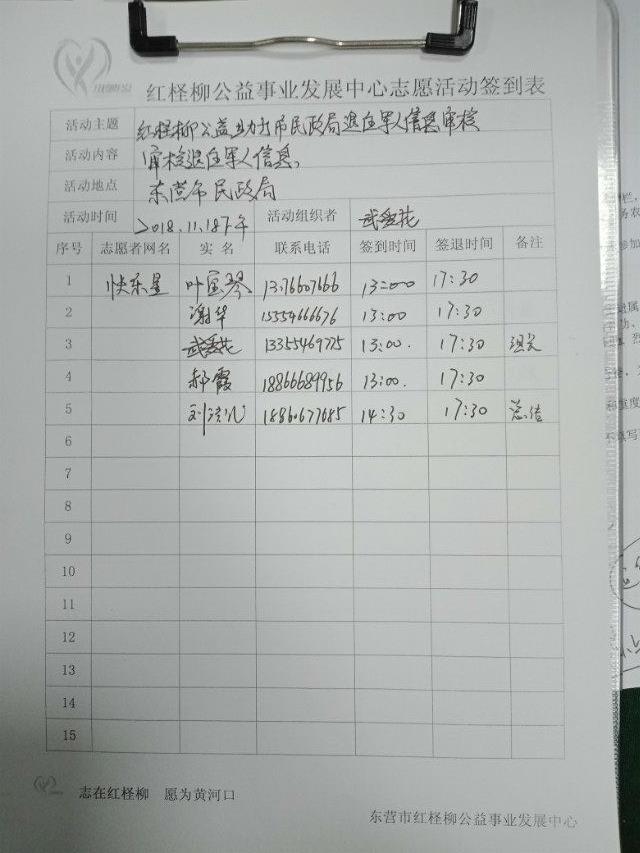 红柽柳公益事业发展中心志愿活动签到表
活动主题 红柽柳公益助力市民政局退伍军人信息审核
活动内容 审核退伍军人信息。
活动地点 东营市民政局
活动时间 2018.11.18下午 活动组织者 武爱花
序号 志愿者网名 实 名 联系电话 签到时间 签退时间 备注
1 快乐星 叶宝琴 13:00 17:30
2 谢华 15554666676 13:00 17:30
3 武爱花 13355469775 13:00. 17:30
4 郝霞 18866689956 13:00. 17:30
5 18860677685 14:30 17:30 总结
6
7
8
9
10
11
12
13
14
15
志在红柽柳 愿为黄河口
东营市红柽柳公益事业发展中心